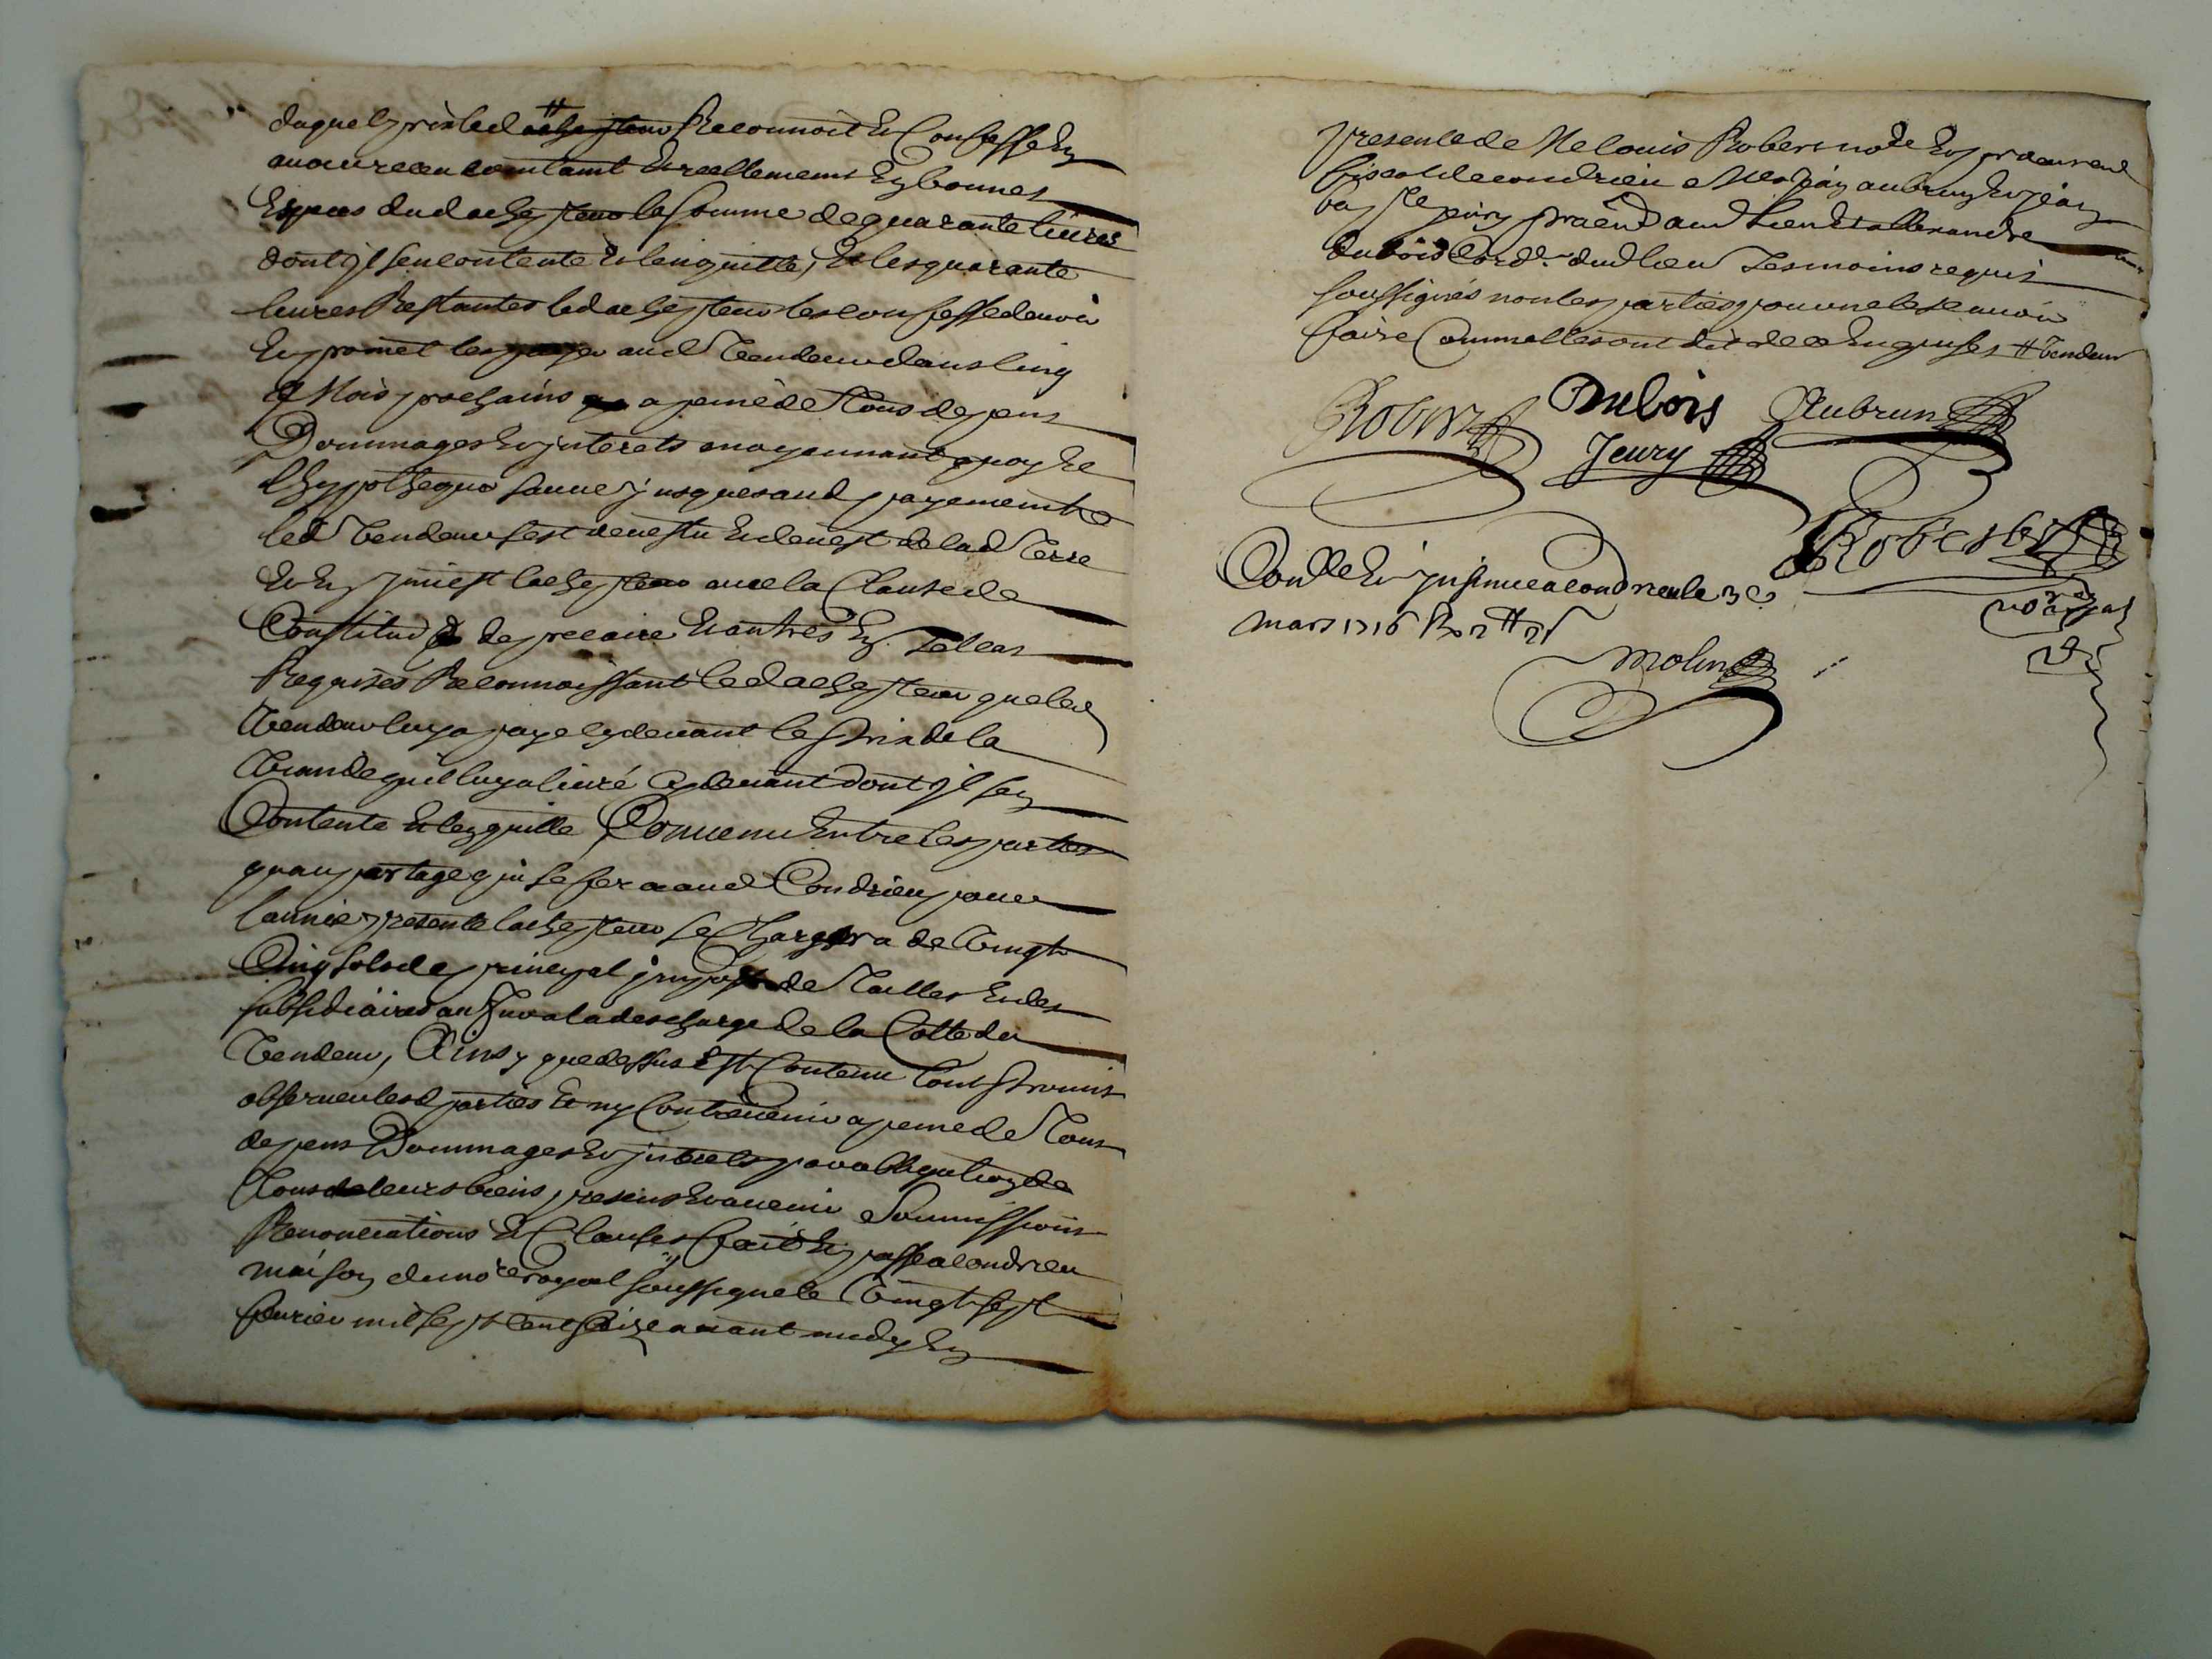 duquel prix led # achepteur Reconnoit et Confesse En
avoir receu comtamt et reellement En bonnes
Especes dud achepteur la somme de quarante livres
dont jl sen contente et len quitte, Et les quarante
livres Restantes led achepteur les confesse devoir
Et promet les payer aud Vendeur dans cinq
Mois prochains a peine de Tous depens
Dommages et jnterets moyennant quoy et
lhypotheque sauve jusques aud payement
led Vendeur sest devestu et devest de lad Terre
Et En jnvest lachepteur avec la Clause de
Constitud de precaire et autres En Tel cas
Requises Reconnoissant led achepteur que led
Vendeur luy a paye cy devant le prix de la
Viande quil luy a livré cy devant dont jl sen
Contente et len quitte Convenu Entre les parties
quau partage qui se fera aud Condrieu pour
lannée presente lachepteur se Chargera de Vingt
Cinq sols de principal jmpost de Tailles et des
subsidiaires au fur a la descharge de la Cotte du
Vendeur, Ainsy que dessus est Contenu lont promis
observer lesd parties et ny Contrevenir a peine de Tous
depens Dommages et jnterets par obligation de
Tous de leurs biens presens et avenir Soumissions
Renonciations et Clauses fait et passé a Condrieu
maison du no.re royal soussigné le Vingt sept
fevrier mil sept cent seize avant midy En
presence de Me louis Robert no.re et procureur
fiscal de condrieu Me Jean aubrun et jean
jeury praticien aud lieu et allexandre
dubois Cord.r dud lieu Tesmoins requis
soussignés non les parties pour ne le scavoir
faire Comme elles ont dit de ce Enquises # Vendeur
Robert Dubois Aubrun
Jeury
Robert
no.re royal
Conllé et jnsinué a Condrieu le 3e
mars 1716 R 2 # 2 s
Molin